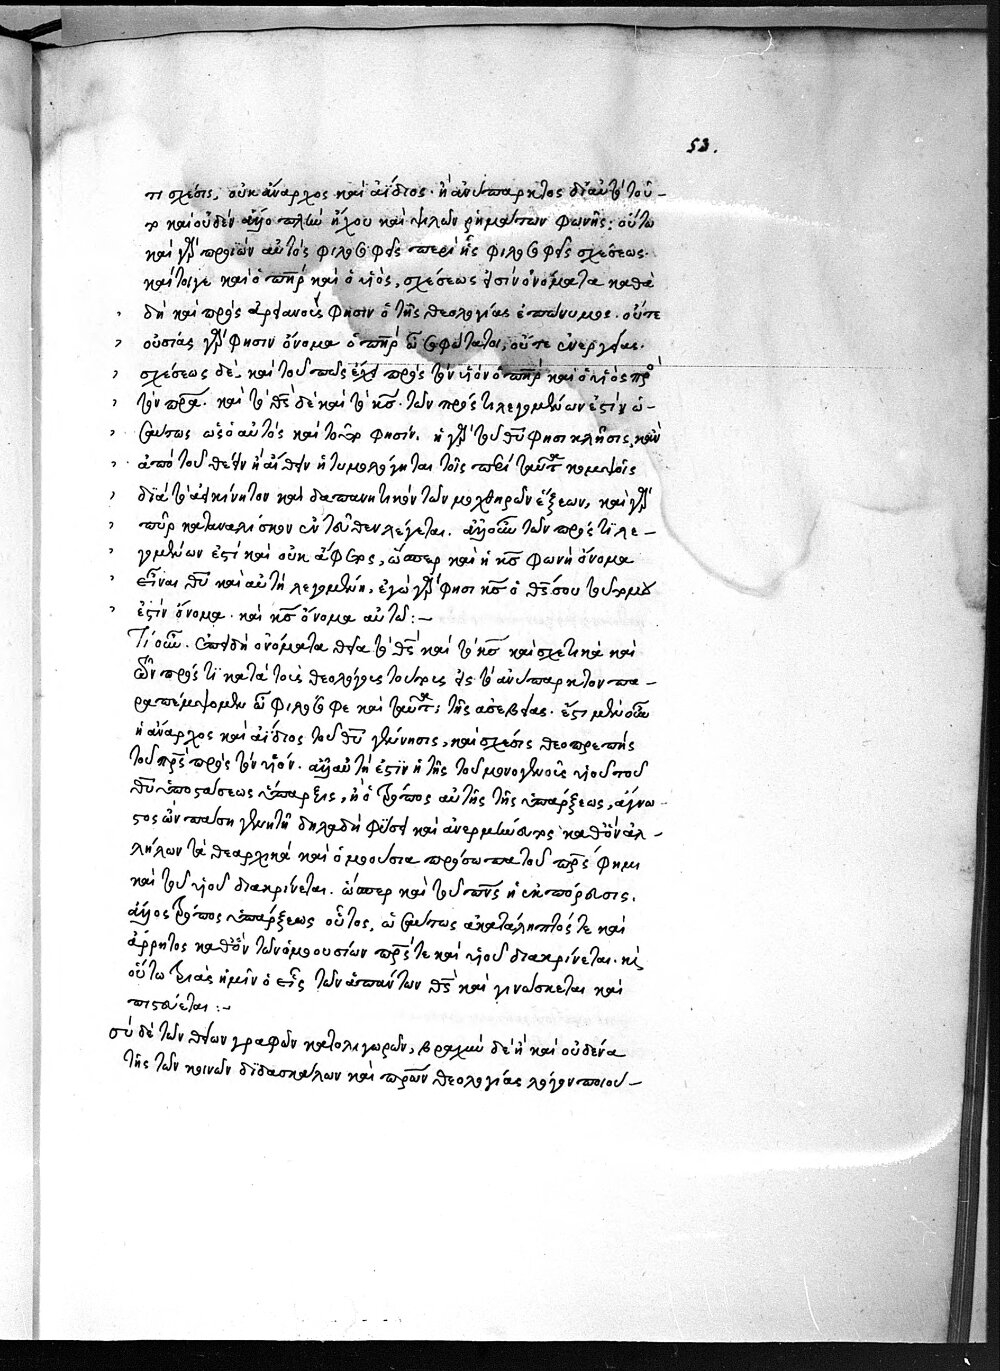 53.
τι σχέσις, οὐκ ἄναρχος καὶ ἀΐδιος· ἢ ἀνύπαρκτος διὰ τὸ τοῦ-
το καὶ οὐδὲν ἄλλο πλὴν ἤχου καὶ ψιλῶν ῥημάτων φωνῆς; οὕτω
καὶ γὰρ αὐτὸς φιλοσοφεῖς περὶ ἧς φιλοσοφεῖς σχέσεως.
καίτοιγε καὶ ὁ πατὴρ καὶ ὁ υἱὸς, σχέσεως εἰσὶν ὀνόματα καθὰ
δὴ καὶ πρὸς ἀρειανοὺς φησὶν ὁ τῆς θεολογίας ἐπώνυμος. οὔτε
οὐσίας γὰρ φησὶν ὄνομα ὁ πατὴρ ὦ σοφώτατοι, οὔτε ἐνεργείας.
σχέσεως δὲ καὶ τοῦ πῶς ἔχει πρὸς τὸν υἱὸν ὁ πατὴρ καὶ ὁ υἱὸς πρὸς
τὸν πατέρα. καὶ τὸ θεὸς δὲ καὶ τὸ κύριος τῶν πρός τι λεγομένων ἐστὶν ὡ-
σαύτως ὡς ὁ αὐτὸς καὶ τοῦτο φησίν. ἡ γὰρ τοῦ θεοῦ φησὶ κλῆσις, κἂν
ἀπὸ τοῦ θέειν ἢ αἴθειν ἠτυμολόγηται τοῖς περὶ ταῦτα κομψοῖς
διὰ τὸ ἀεικίνητον καὶ δαπανητικὸν τῶν μοχθηρῶν ἕξεων, καὶ γὰρ
πῦρ καταναλίσκον ἐντεῦθεν λέγεται. ἀλλ' οὖν τῶν πρός τι λε-
γομένων ἐστὶ καὶ οὐκ ἄφετος, ὥσπερ καὶ ἡ κύριος φωνὴ ὄνομα
εἶναι θεοῦ καὶ αὐτὴ λεγομένη, ἐγὼ γὰρ φησὶ κύριος ὁ θεός σου τοῦτό μου
ἐστὶν ὄνομα. καὶ κύριος ὄνομα αὐτῷ:-
Τί οὖν. ἐπειδὴ ὀνόματα θεῖα τὸ θεὸς καὶ τὸ κύριος καὶ σχετικὰ καὶ
τῶν πρός τι κατὰ τοὺς θεολόγους τούτους εἰς τὸ ἀνύπαρκτον πα-
ραπέμψομεν ὦ φιλόσοφε καὶ ταῦτα; τῆς ἀσεβείας. ἔστι μὲν οὖν
ἡ ἄναρχος καὶ ἀΐδιος τοῦ θεοῦ γέννησις, καὶ σχέσις θεοπρεπὴς
τοῦ πατρὸς πρὸς τὸν υἱόν. ἀλλ' αὐτή ἐστιν ἡ τῆς τοῦ μονογενοῦς υἱοῦ τοῦ
θεοῦ ὑποστάσεως ὕπαρξις, ἢ ὁ τρόπος αὐτῆς τῆς ὑπάρξεως, ἄγνω-
στος ὢν πάσῃ γεννητῇ δηλαδὴ φύσει καὶ ἀνερμήνευτος καθ' ὃν ἀλ-
λήλων τὰ θεαρχικὰ καὶ ὁμοούσια πρόσωπα τοῦ πατρὸς φημὶ
καὶ τοῦ υἱοῦ διακρίνεται. ὥσπερ καὶ τοῦ πνεύματος ἡ ἐκπόρευσις.
ἄλλος τρόπος ὑπάρξεως οὗτος, ὡσαύτως ἀκατάληπτός τε καὶ
ἄρρητος καθ' ὃν τῶν ὁμοουσίων πατρός τε καὶ υἱοῦ διακρίνεται. καὶ
οὕτω τριὰς ἡμῖν ὁ εἷς τῶν ἁπάντων θεὸς καὶ γινώσκεται καὶ
πιστεύεται:-
σὺ δὲ τῶν θείων γραφῶν κατολιγωρῶν, βραχὺν δὲ ἢ καὶ οὐδένα
τῆς τῶν κοινῶν διδασκάλων καὶ πατέρων θεολογίας λόγον ποιού-